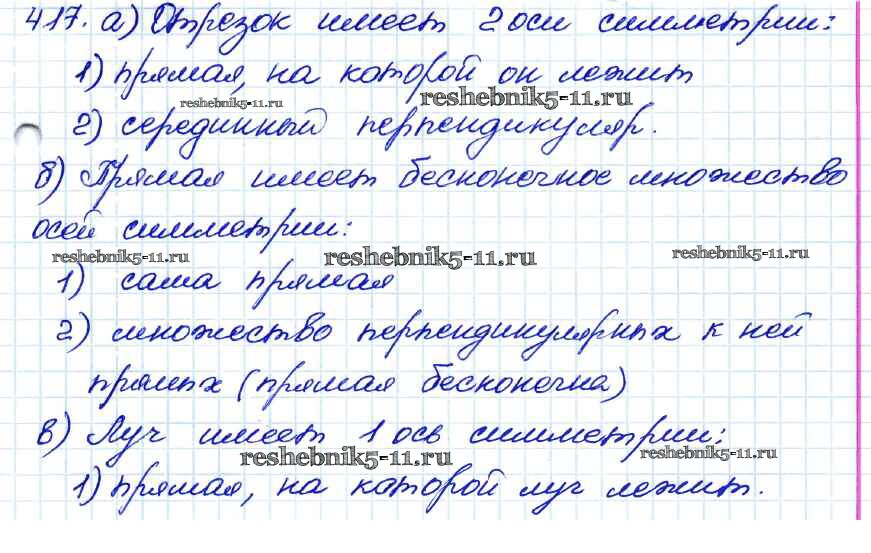 417. а) Отрезок имеет 2 оси симметрии:
1) прямая, на которой он лежит
reshebnik5-11.ru reshebnik5-11.ru
2) серединный перпендикуляр.
б) Прямая имеет бесконечное множество
осей симметрии:
reshebnik5-11.ru reshebnik5-11.ru reshebnik5-11.ru
1) сама прямая
2) множество перпендикулярных к ней
прямых (прямая бесконечна)
в) Луч имеет 1 ось симметрии:
reshebnik5-11.ru reshebnik5-11.ru
1) прямая, на которой луч лежит.